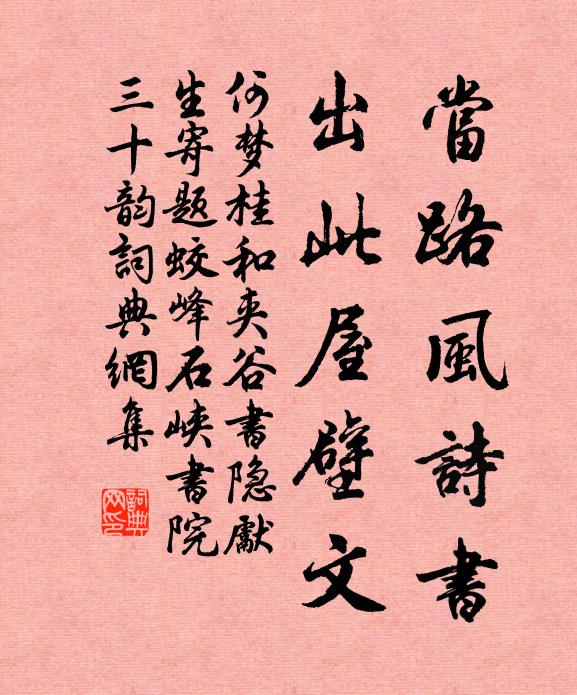 當路風詩書
出此屋壁文
何梦桂和夹谷書隐獻
生寄题蛟峰石峡書院
三十韵詞典網集
詞典
网印